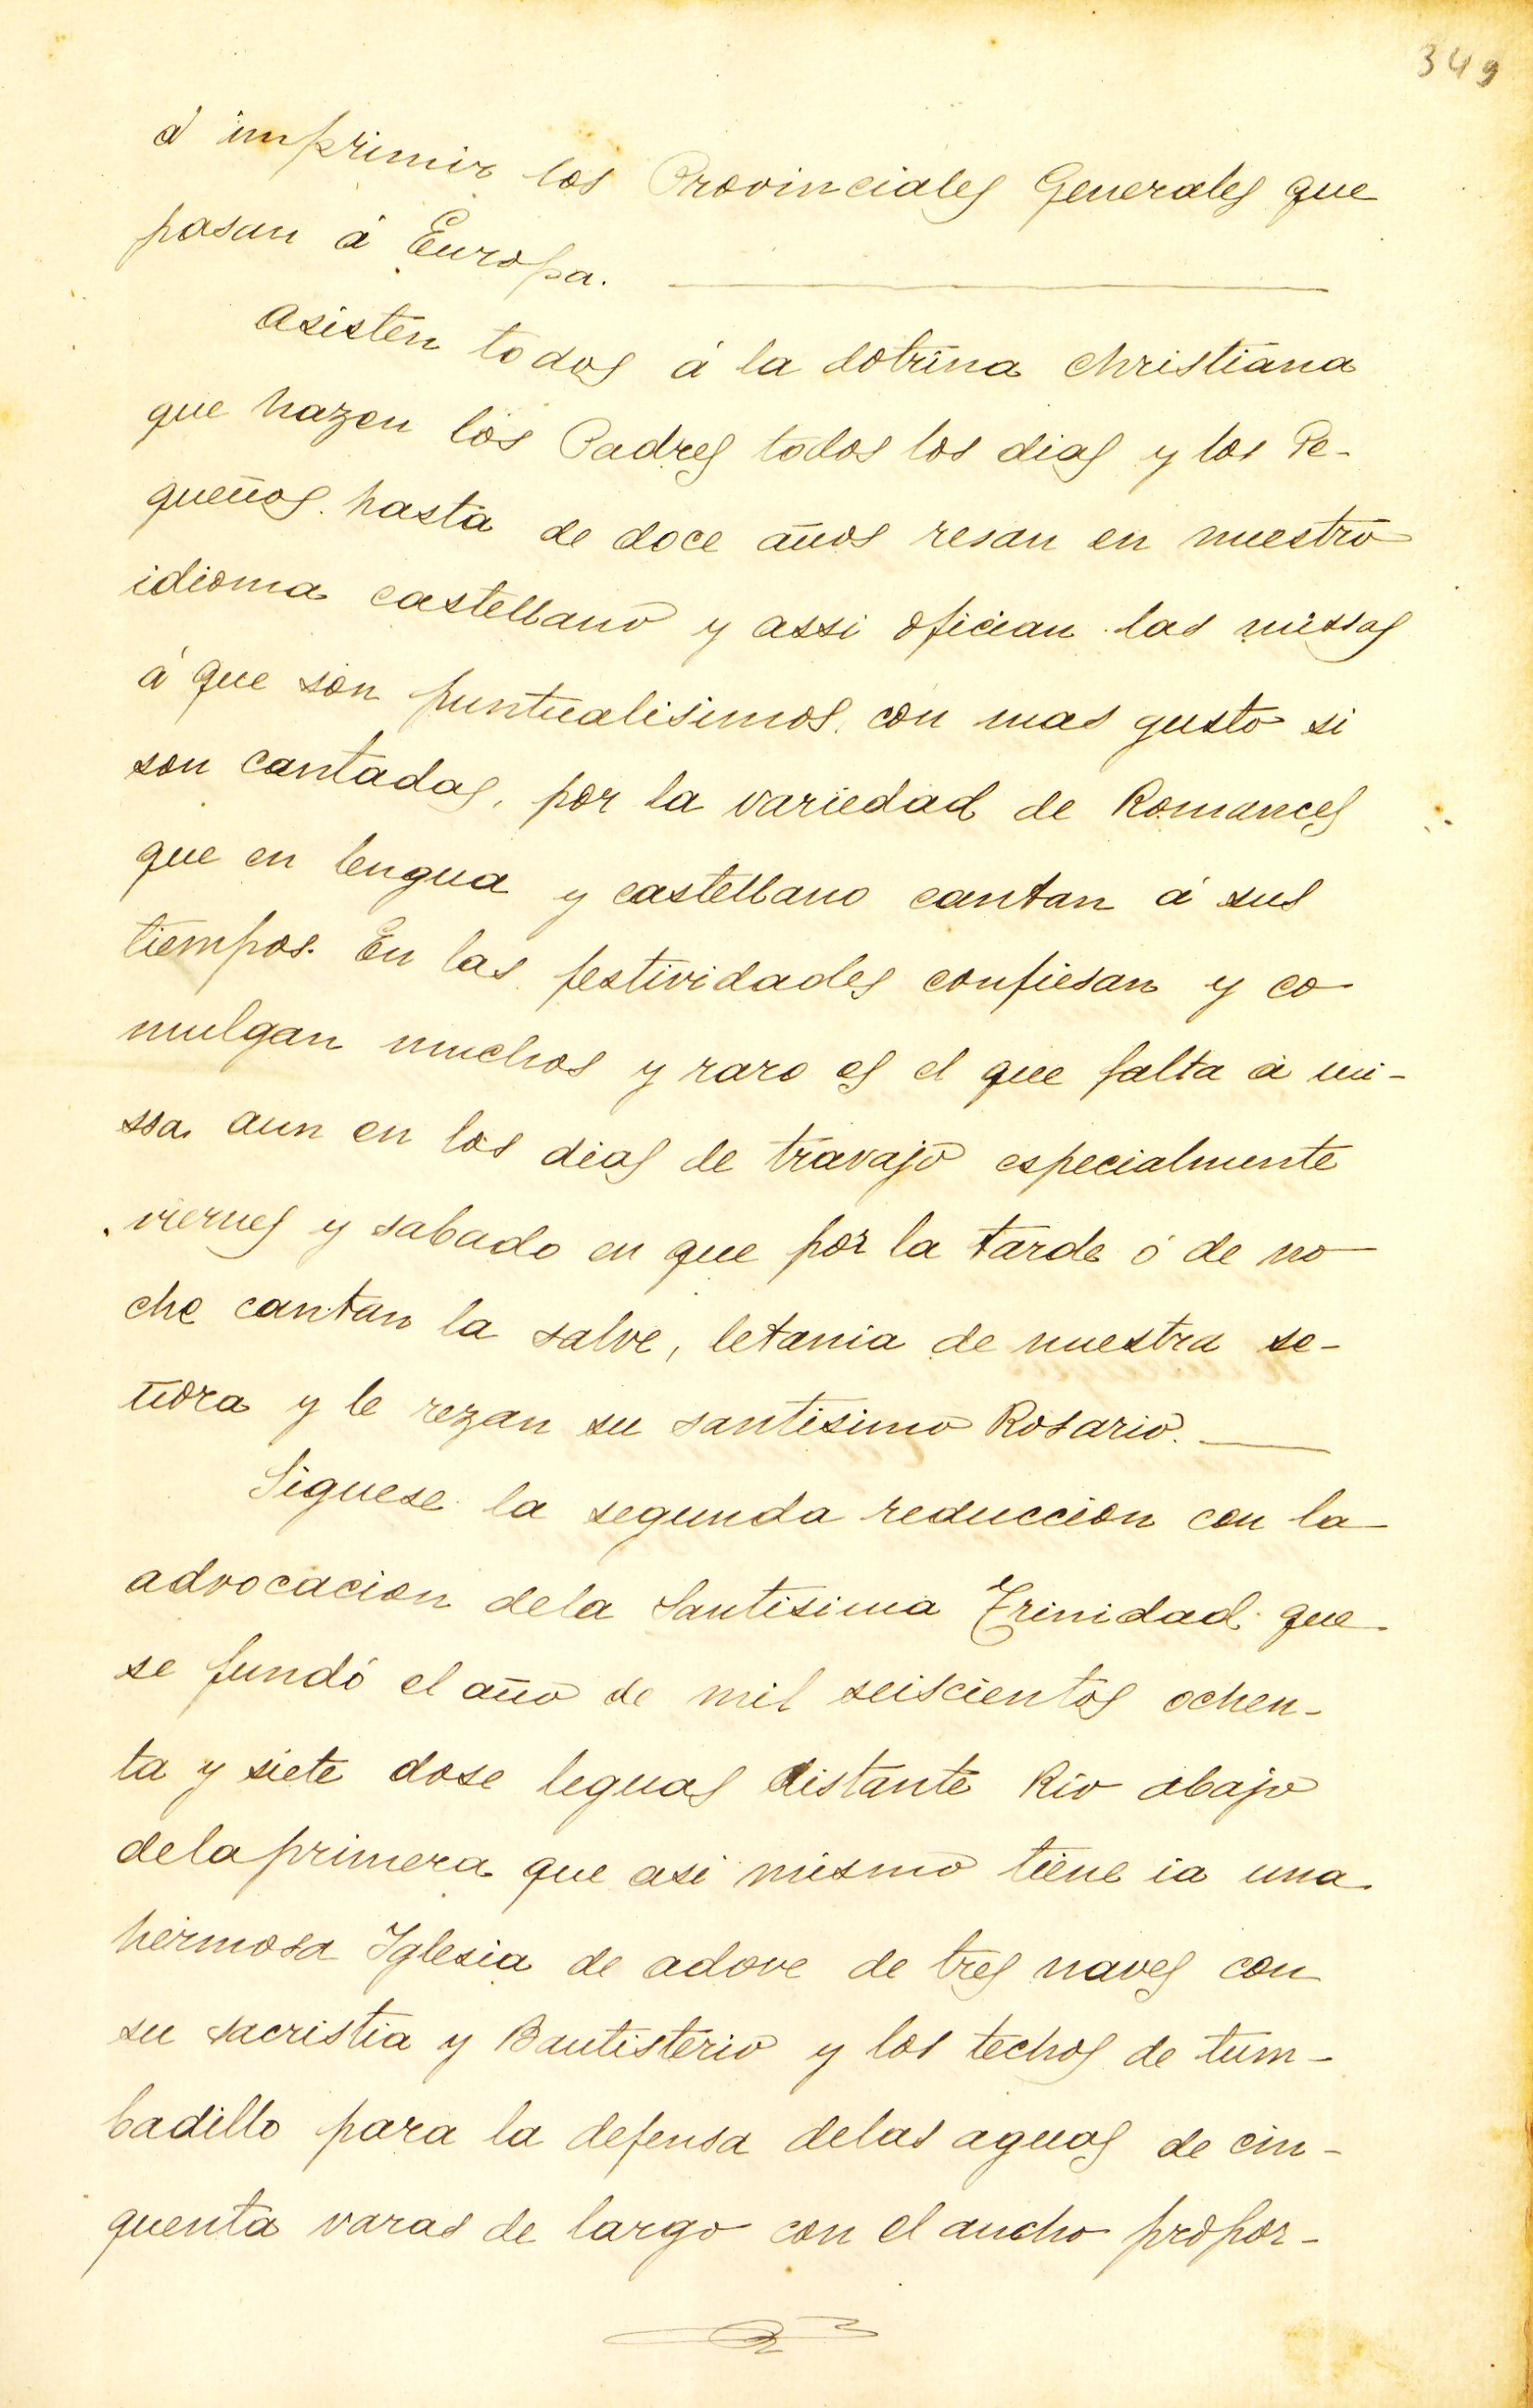 349
á imprimir los Provinciales Generales que
pasan á Europa.
Asisten todos á la dotrina christiana
que hazen los Padres todos los dias y los Pe-
queños hasta de doce años resan en nuestro
idioma castellano y assi ofician las missas
á que son puntualisimos, con mas gusto si
son cantadas, por la variedad de Romances
que en lengua y castellano cantan á sus
tiempos. En las festividades confiesan y co
mulgan muchos y raro es el que falta á mi-
ssa aun en los dias de travajo especialmente
viernes y sabado en que por la tarde ó de no
che cantan la salve, letania de nuestra se-
ñora y le rezan su santisimo Rosario.
Siguese la segunda reduccion con la
advocacion dela Santisima Trinidad que
se fundó el año de mil seiscientos ochen-
ta y siete dose leguas distante Rio abajo
dela primera que asi mismo tiene ia una
hermosa Iglesia de adove de tres naves con
su sacristia y Bautisterio y los techos de tum-
badillo para la defensa delas aguas de cin-
quenta varas de largo con el ancho propor-